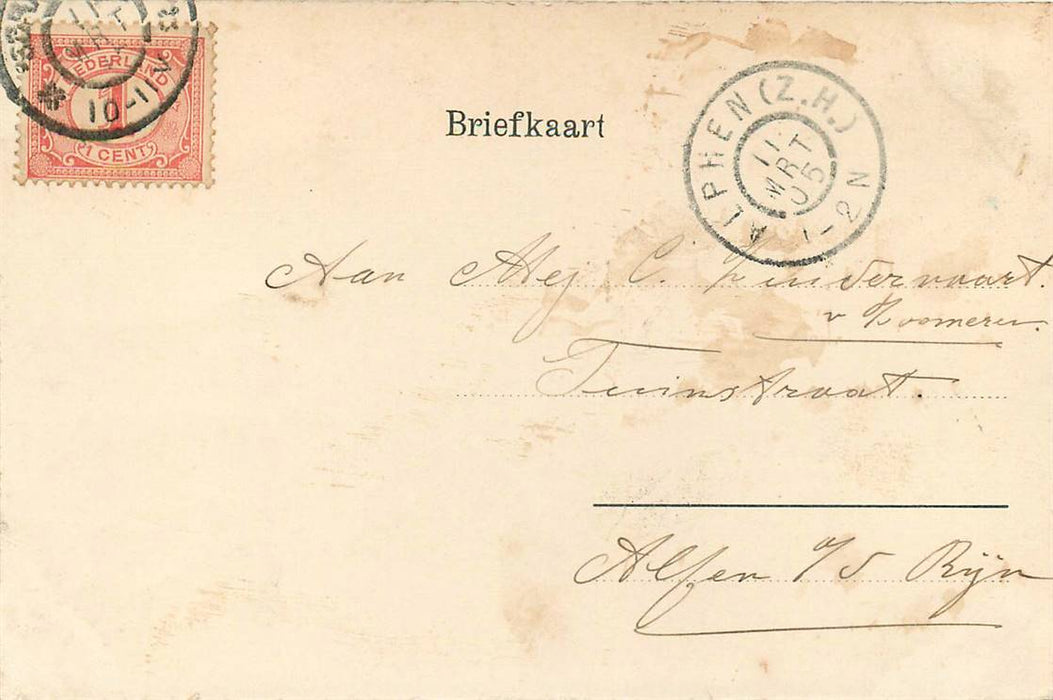 11
MRT
10-11V
NEDERLAND
1
1 CENT
Briefkaart
ALPHEN (Z.H.)
11
MRT
05
1-2N
Aan Mej C. Lindervaart.
v Boomeren.
Tuinstraat.
Alfen a/d Rijn